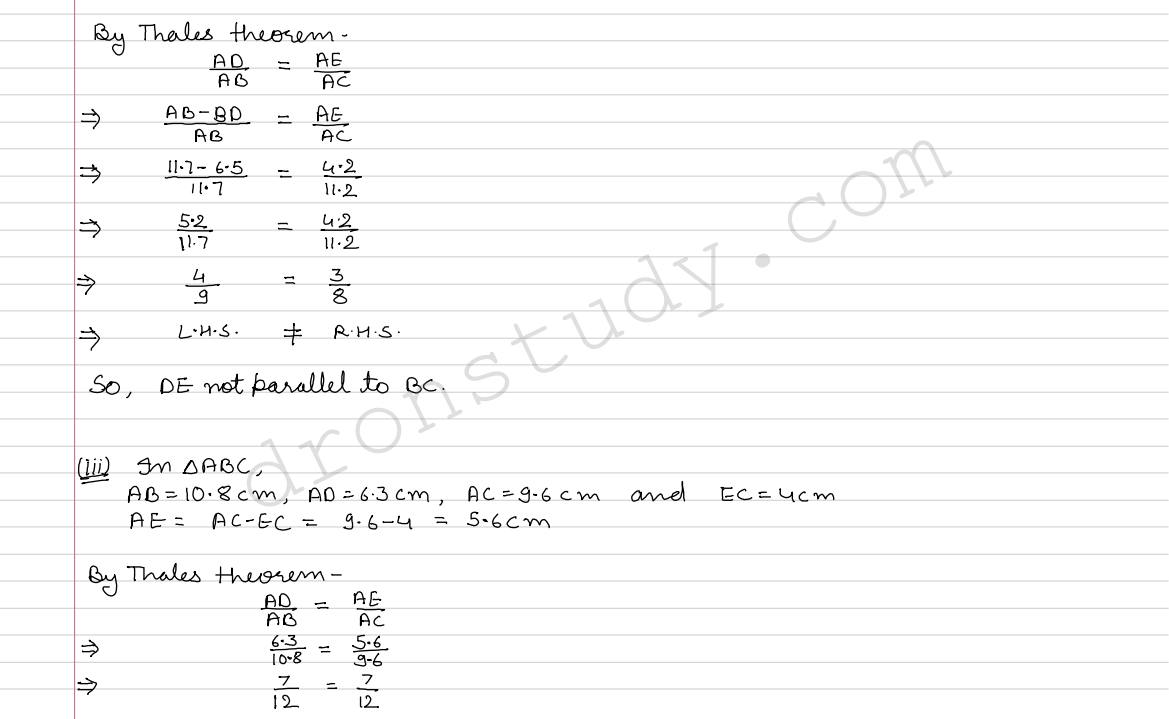 By Thales theorem-
AD/AB = AE/AC
⇒ AB-BD/AB = AE/AC
⇒ 11.7-6.5/11.7 = 4.2/11.2
⇒ 5.2/11.7 = 4.2/11.2
⇒ 4/9 = 3/8
⇒ L.H.S. ≠ R.H.S.
So, DE not parallel to BC.
(iii) In △ABC,
AB=10.8cm, AD=6.3cm, AC=9.6cm and EC=4cm
AE= AC-EC = 9.6-4 = 5.6cm
By Thales theorem-
AD/AB = AE/AC
⇒ 6.3/10.8 = 5.6/9.6
⇒ 7/12 = 7/12
dronstudy.com